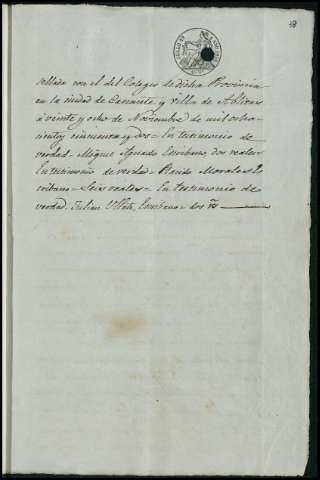 sellada con el del Colegio de dicha Provincia
en la ciudad de y villa de
á veinte y ocho de Noviembre de mil ocho
cientos cincuenta y dos = En testimonio de
verdad = Miguel Aguado Escribano, dos reales
En testimonio de verdad = Placido Morales Es
cribano = Seis reales = En testimonio de
verdad = Julian Escribano = dos rs